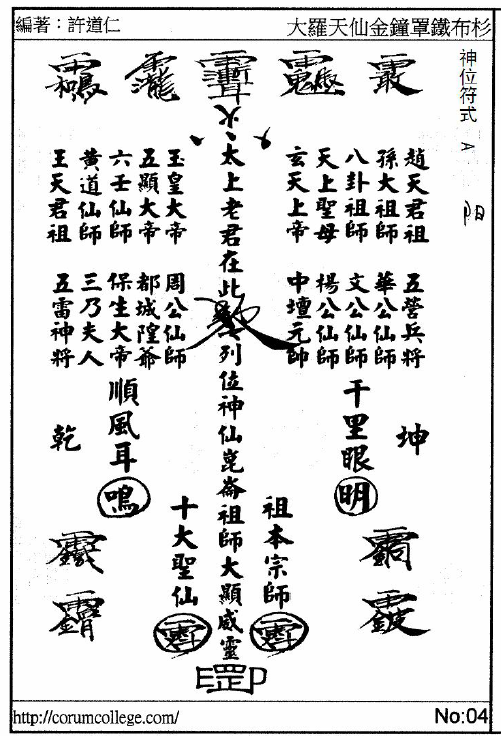 編著：許道仁
大羅天仙金鐘罩鐵布杉
神位符式 A
阳
趙天君祖 五營兵將
孫大祖師 華公仙師
八卦祖師 文公仙師
天上聖母 楊公仙師
玄天上帝 中壇元帥
太上老君在此
列位神仙崑崙祖師大顯威靈
玉皇大帝 周公仙師
五顯大帝 都城隍爺
六壬仙師 保生大帝
黄道仙師 三乃夫人
王天君祖 五雷神將
坤
千里眼 明
順風耳 鳴
乾
祖本宗師
十大聖仙
http://corumcollege.com/
No:04